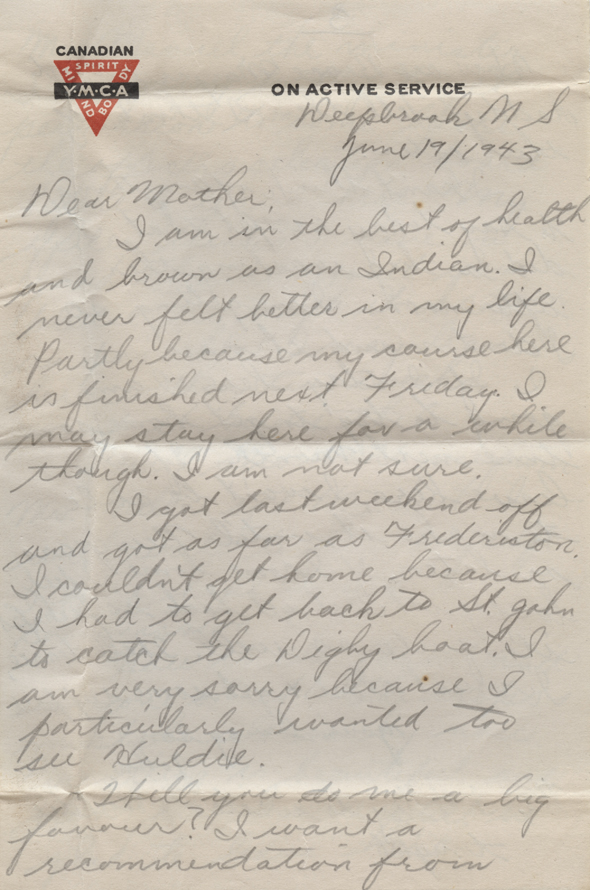 CANADIAN
SPIRIT
MIND
BODY
Y·M·C·A
ON ACTIVE SERVICE
Deepbrook N S
June 19/1943
Dear Mother;
I am in the best of health
and brown as an Indian. I
never felt better in my life.
Partly because my course here
is finished next Friday. I
may stay here for a while
though. I am not sure.
I got last weekend off
and got as far as Fredericton.
I couldn't get home because
I had to get back to St. John
to catch the Digby boat. I
am very sorry because I
particularly wanted too
see Huldie.
Will you do me a big
favour? I want a
recommendation from